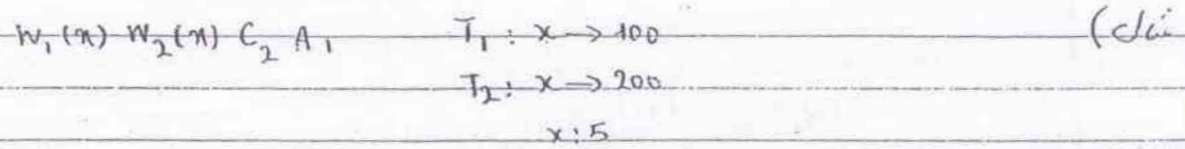 W₁(x) W₂(x) C₂ A₁ T₁ : x → 100
T₂ : x → 200
x : 5